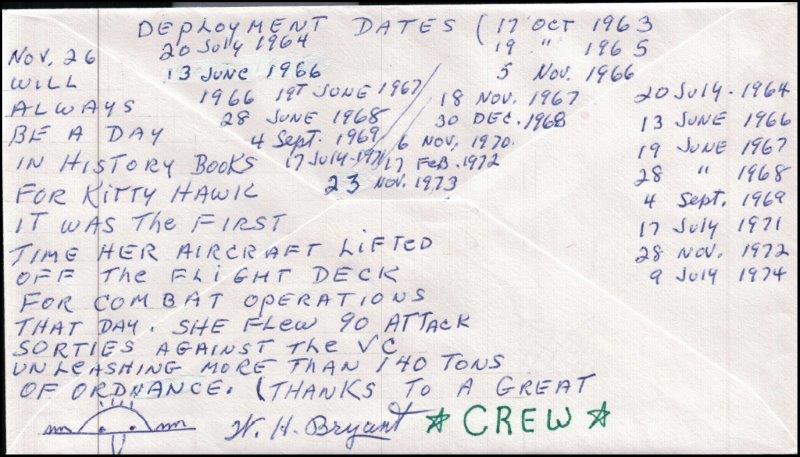 DEPLOYMENT DATES (17 OCT 1963
20 July 1964 19 " 1965
NOV. 26 13 JUNE 1966 5 NOV. 1966
WILL 1966 19T JUNE 1967 18 NOV. 1967 20 July - 1964
ALWAYS 28 JUNE 1968 30 DEC. 1968 13 JUNE 1966
BE A DAY 4 Sept. 1969 6 NOV. 1970. 19 JUNE 1967
IN HISTORY BOOKS 17 July - 1971 17 FEB. 1972 28 " 1968
FOR KITTY HAWK 23 NOV. 1973 4 Sept. 1969
IT WAS The FIRST 17 July 1971
TIME HER AIRCRAFT LIFTED 28 NOV. 1972
OFF The FLIGHT DECK 9 July 1974
FOR COMBAT OPERATIONS
THAT DAY. SHE FLEW 90 ATTACK
SORTIES AGAINST The VC
UNLEASHING MORE THAN 140 TONS
OF ORDNANCE. (THANKS TO A GREAT
W. H. Bryant ☆CREW☆